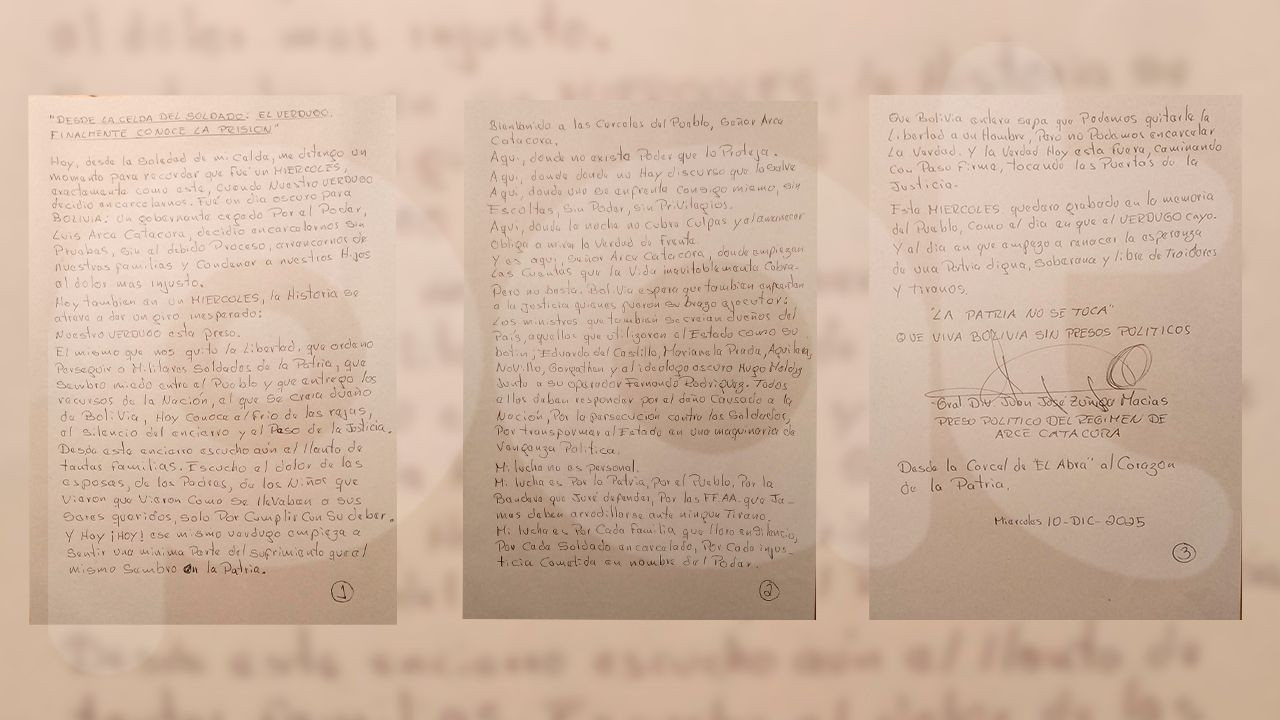 "DESDE LA CELDA DEL SOLDADO: EL VERDUGO,
FINALMENTE CONOCE LA PRISION"
Hoy, desde la Soledad de mi Celda, me detengo un
momento para recordar que fue un MIERCOLES,
exactamente como este, cuando Nuestro VERDUGO
decidio encarcelarnos. Fue un dia oscuro para
BOLIVIA: Un gobernante cegado Por el Poder,
Luis Arce Catacora, decidio encarcelarnos Sin
Pruebas, sin el debido Proceso, arrancarnos de
nuestras familias y Condenar a nuestros Hijos
al dolor mas injusto.
Hoy tambien en un MIERCOLES, la Historia se
atreve a dar un giro inesperado:
Nuestro VERDUGO esta preso.
El mismo que nos quito la Libertad, que ordeno
Perseguir a Militares Soldados de la Patria, que
Sembro miedo entre el Pueblo y que entrego los
recursos de la Nación, el que se creia dueño
de Bolivia, Hoy Conoce el Frio de las rejas,
el Silencio del encierro y el Peso de la Justicia.
Desde este encierro escucho aún el llanto de
tantas familias. Escucho el dolor de las
esposas, de los Padres, de los Niños que
Vieron que Vieron Como Se llevaban a sus
Seres queridos, Solo Por Cumplir Con Su deber.
Y Hoy ¡HOY! ese mismo verdugo empieza a
Sentir una minima Parte del sufrimiento que el
mismo Sembro en la Patria.
1
Bienvenido a las Carceles del Pueblo, Señor Arce
Catacora.
Aqui, donde no existe Poder que lo Proteja.
Aqui, donde donde no Hay discurso que lo Salve
Aqui, donde uno Se enfrenta Consigo mismo, sin
Escoltas, Sin Poder, sin Privilegios.
Aqui, donde la noche no Cubre Culpas y el amanecer
Obliga a mirar la Verdad de Frente.
Y es aqui, Señor Arce Catacora, donde empiezan
Las Cuentas que la Vida inevitablemente Cobra.
Pero no basta. Bolivia espera que tambien enfrenten
a la Justicia quienes fueron su brazo ejecutor:
Los ministros que tambien se creian dueños del
País, aquellos que utilizaron al Estado como su
botin; Eduardo del Castillo, Marianela Prada, Aguilera,
Novillo, Gonzalo y el ideologo oscuro Hugo Moldiz
Junto a su operador Fernando Rodriguez. Todos
ellos deben responder por el daño Causado a la
Nación, Por la persecución contra los Soldados,
Por transformar al Estado en una maquinaria de
Venganza Politica.
Mi lucha no es personal.
Mi lucha es Por la Patria, Por el Pueblo, Por la
Bandera que Juré defender, Por las FF.AA. que Ja-
mas deben arrodillarse ante ningun Tirano.
Mi lucha es Por Cada Familia que lloro en Silencio,
Por Cada Soldado encarcelado, Por Cada injus-
ticia Cometida en nombre del Poder.
2
Que Bolivia entera sepa que Podemos quitarle la
Libertad a un Hombre, Pero no Podemos encarcelar
La Verdad. Y la Verdad Hoy esta fuera, Caminando
Con Paso Firme, Tocando las Puertas de la
Justicia.
Este MIERCOLES quedara grabado en la memoria
del Pueblo, Como el dia en que el VERDUGO cayo.
Y el dia en que empezo a renacer la esperanza
de una Patria digna, Soberana y libre de Traidores
y Tiranos.
"LA PATRIA NO SE TOCA"
QUE VIVA BOLIVIA SIN PRESOS POLITICOS
Gral Div. Juan José Zuñiga Macias
PRESO POLITICO DEL REGIMEN DE
ARCE CATACORA
Desde la Carcel de "El Abra" al Corazon
de la Patria.
Miercoles 10-DIC-2025
3